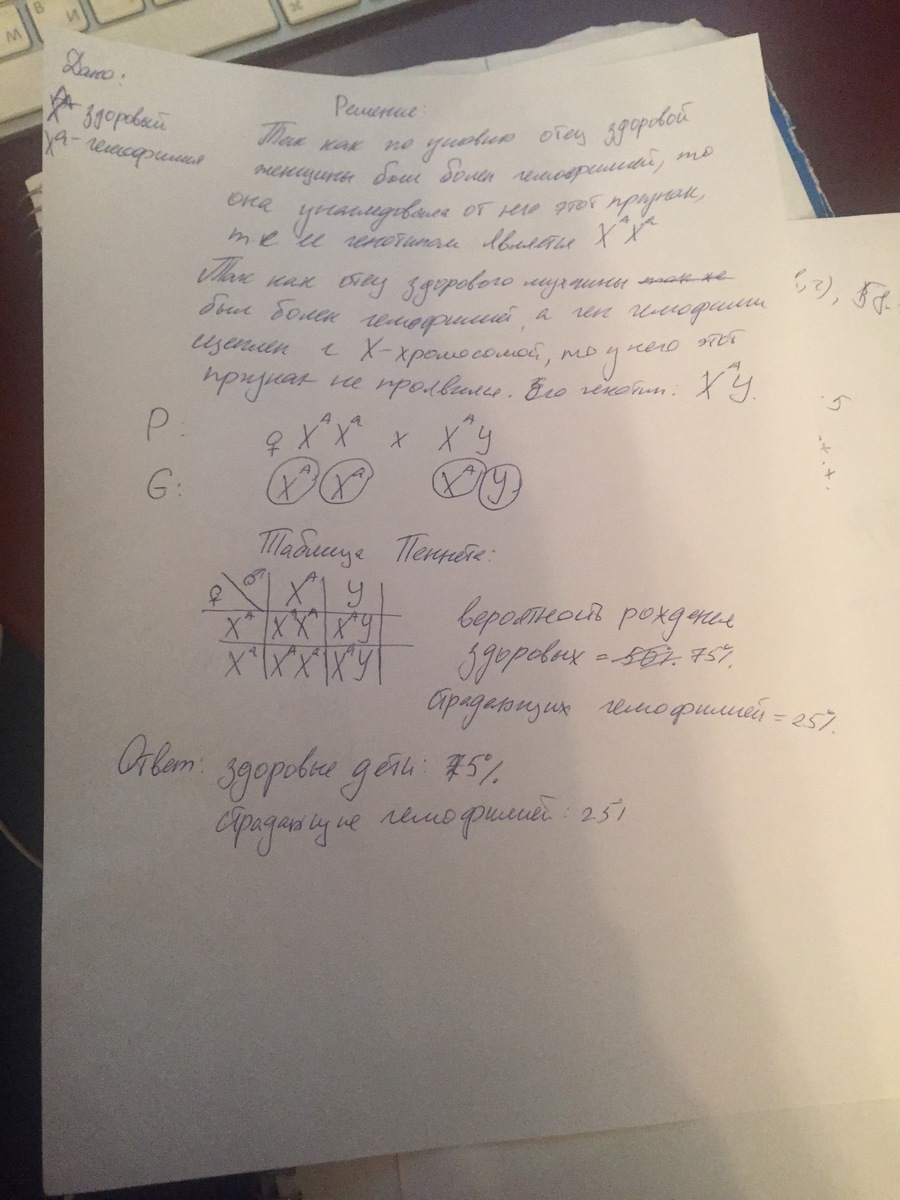 Дано:
X^A - здоровый
X^a - гемофилия
Решение:
Так как по условию отец здоровой
женщины был болен гемофилией, то
она унаследовала от него этот признак,
т.к ее генотипом является X^A X^a
Так как отец здорового мужчины так же
был болен гемофилией, а ген гемофилии
сцеплен с X-хромосомой, то у него этот
признак не проявился. Его генотип: X^A У.
P: ♀ X^A X^a x X^A У
G: X^A X^a X^A У
Таблица Пеннета:
♀ ♂ X^A У
X^A X^A X^A X^A У
X^a X^A X^a X^a У
вероятность рождения
здоровых = 50%. 75%.
Страдающих гемофилией = 25%.
Ответ: здоровые дети: 75%.
Страдающие гемофилией: 25%
5